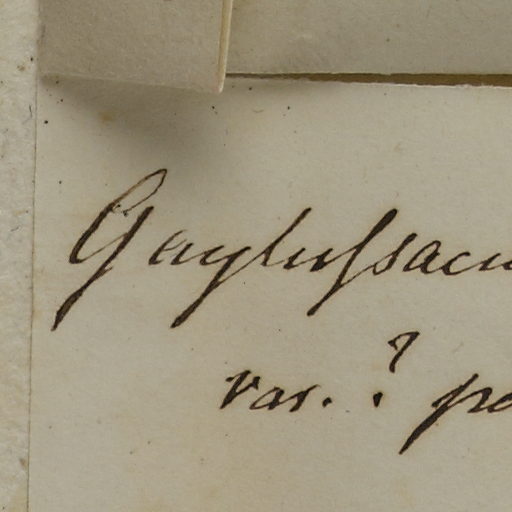 Gaylussacu
var. ? po